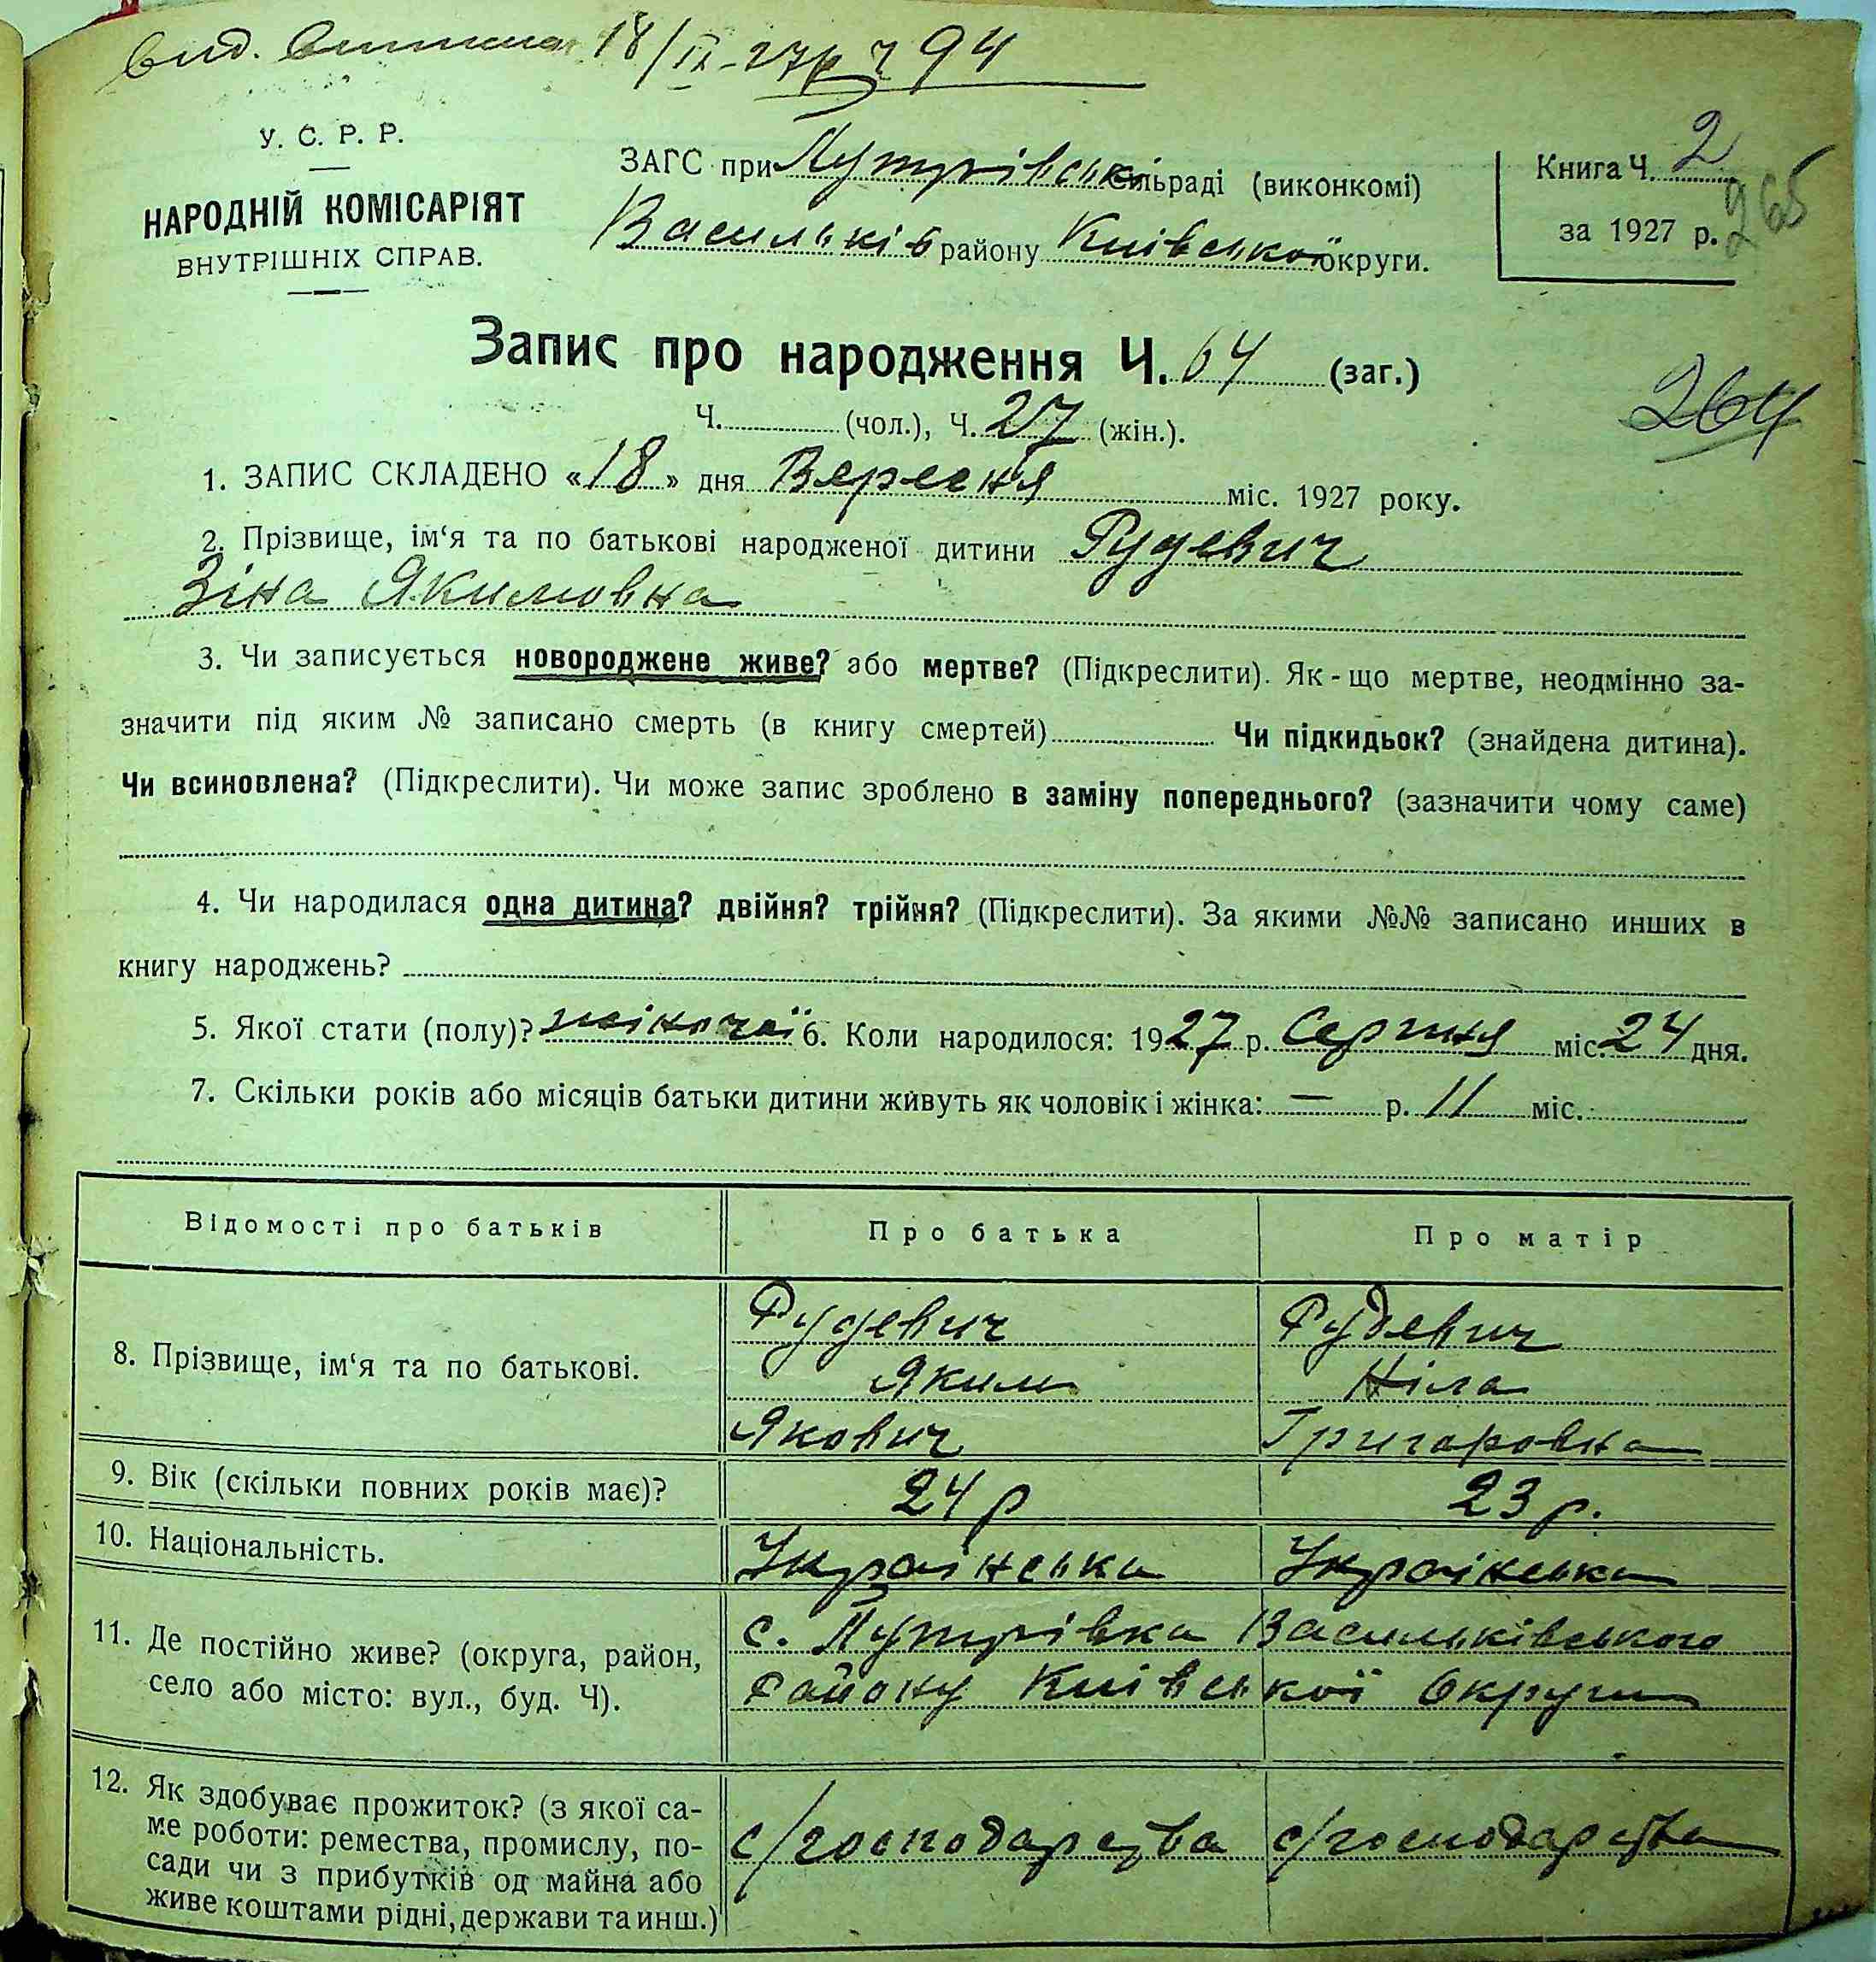 вид. виписка 18/IX-27р Ч 94
У. С. Р. Р.
НАРОДНІЙ КОМІСАРІЯТ
ВНУТРІШНІХ СПРАВ.
ЗАГС при Путрівськ. сільраді (виконкомі)
Васильків району Київської округи.
Книга Ч. 2
за 1927 р.
265
Запис про народження Ч. 64 (заг.)
264
Ч. (чол.), Ч. 27 (жін.).
1. ЗАПИС СКЛАДЕНО «18» дня Вересня міс. 1927 року.
2. Прізвище, ім‘я та по батькові народженої дитини Рудевич
Зіна Якимовна
3. Чи записується новороджене живе? або мертве? (Підкреслити). Як-що мертве, неодмінно за-
значити під яким № записано смерть (в книгу смертей) Чи підкидьок? (знайдена дитина).
Чи всиновлена? (Підкреслити). Чи може запис зроблено в заміну попереднього? (зазначити чому саме)
4. Чи народилася одна дитина? двійня? трійня? (Підкреслити). За якими №№ записано инших в
книгу народжень?
5. Якої стати (полу)? жіночої 6. Коли народилося: 1927 р. Серпня міс. 24 дня.
7. Скільки років або місяців батьки дитини живуть як чоловік і жінка: — р. 11 міс.
Відомості про батьків Про батька Про матір
8. Прізвище, ім‘я та по батькові.
Рудевич
Яким
Якович
Рудевич
Ніла
Григоровна
9. Вік (скільки повних років має)? 24 р 23 р.
10. Національність. Українська Українська
11. Де постійно живе? (округа, район,
село або місто: вул., буд. Ч).
с. Путрівка Васильківського
Району Київської Округи
12. Як здобуває прожиток? (з якої са-
ме роботи: ремества, промислу, по-
сади чи з прибутків од майна або
живе коштами рідні, держави та инш.)
с/господарства с/господарства